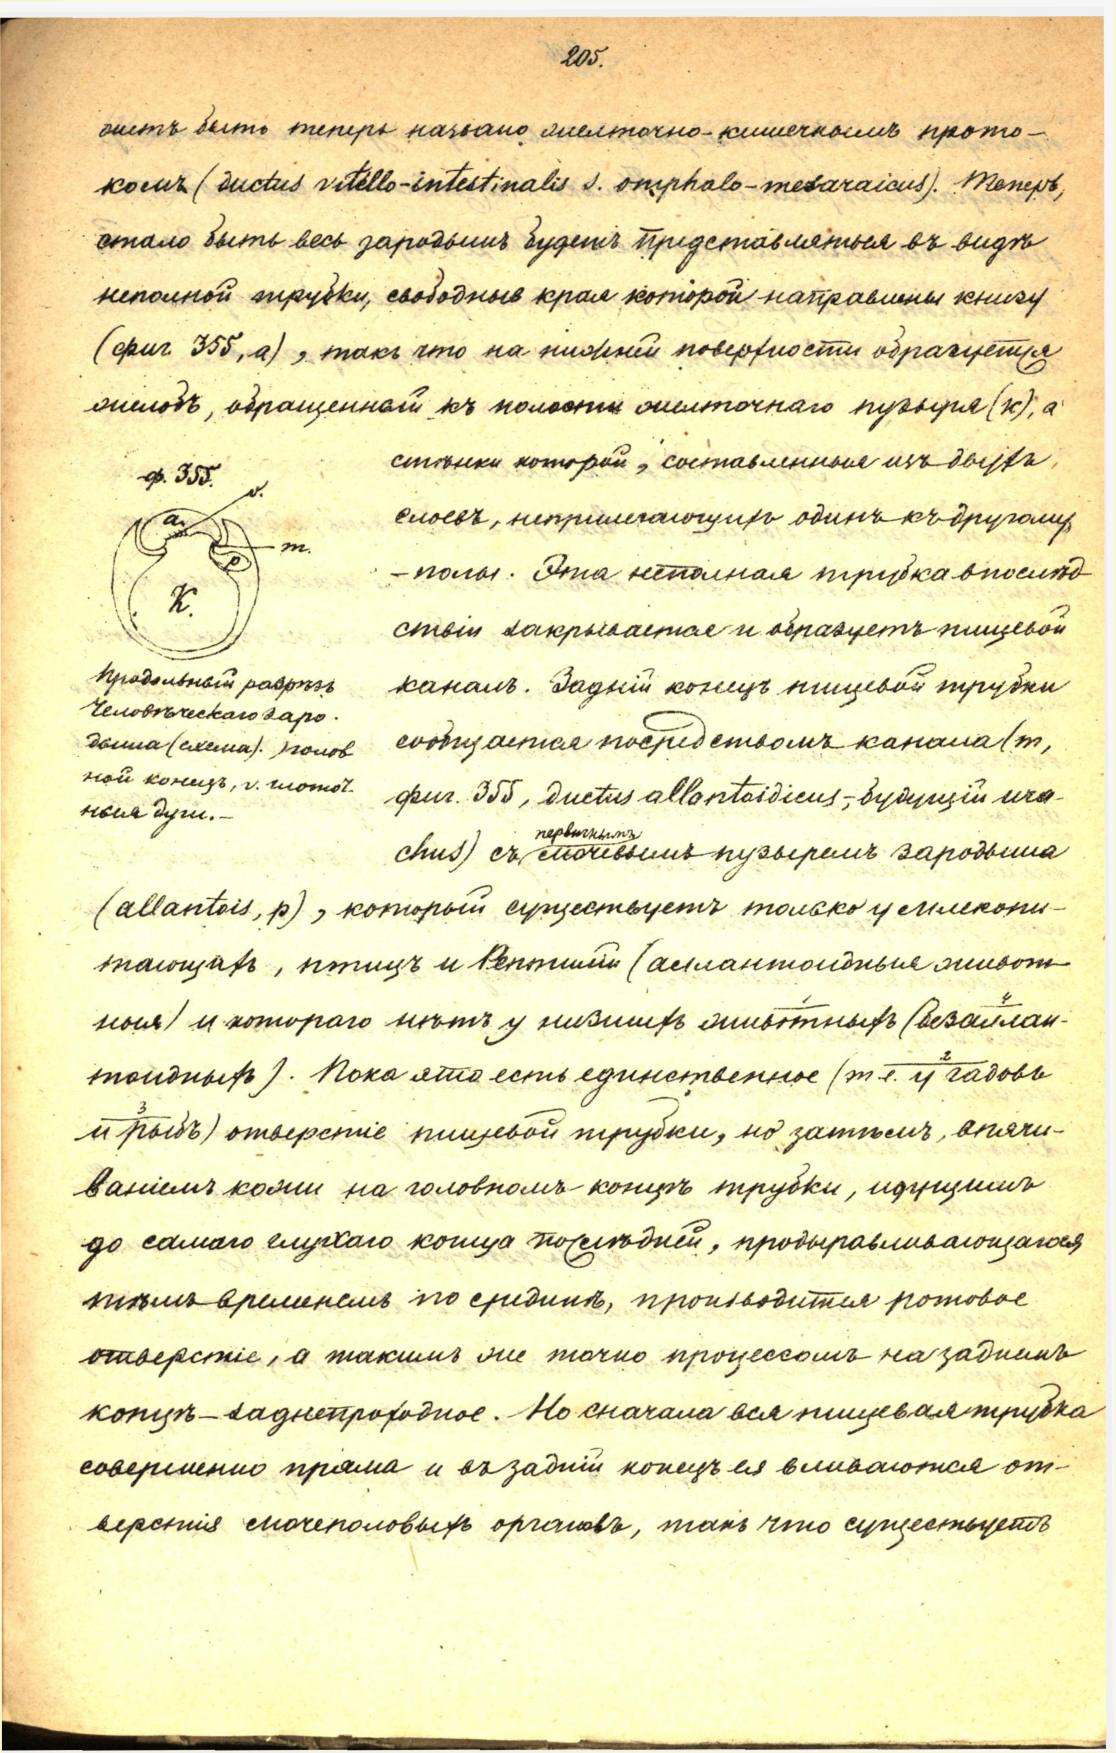 205.
жетъ быть теперь названо желточно-кишечнымъ прото-
комъ (ductus vitello-intestinalis s. omphalo-mesaraicus). Теперь,
стало быть весь зародышъ будетъ представляться въ видѣ
неполной трубки, свободные края которой направлены книзу
(фиг. 355, а), такъ что на нижней поверхности образуется
жёлобъ, обращенный къ полости желточнаго пузыря (к), а
стѣнки которой, составленныя изъ двухъ
слоевъ, неприлегающихъ одинъ къ другому,
- полы. Эта неполная трубка впослѣд-
ствіи закрывается и образуетъ пищевой
каналъ. Задній конецъ пищевой трубки
сообщается посредствомъ канала (m,
фиг. 355, ductus allantoidicus, - будущій ura-
chus) съ первичнымъ мочевымъ пузыремъ зародыша
ф. 355.
v.
a.
m.
p
K.
Продольный разрѣзъ
человѣческаго заро-
дыша (схема). голов
ной конецъ, v. глоточ.
ныя дуги. -
(allantois, p), который существуетъ только у млекопи-
тающихъ, птицъ и Рептилій (аллантоидныя живот-
ныя) и котораго нѣтъ у низшихъ животныхъ (безаллан-
тоидныхъ). Пока это есть единственное (т.е. у гадовъ
и рыбъ) отверстіе пищевой трубки, но затѣмъ, впячи-
ваніемъ кожи на головномъ концѣ трубки, идущимъ
до самаго глухаго конца послѣдней, продыравливающагося
тѣмъ временемъ по срединѣ, производится ротовое
отверстіе, а такимъ же точно процессомъ на заднемъ
концѣ - заднепроходное. Но сначала вся пищевая трубка
совершенно пряма и въ задній конецъ ея вливаются от-
верстія мочеполовыхъ органовъ, такъ что существуетъ